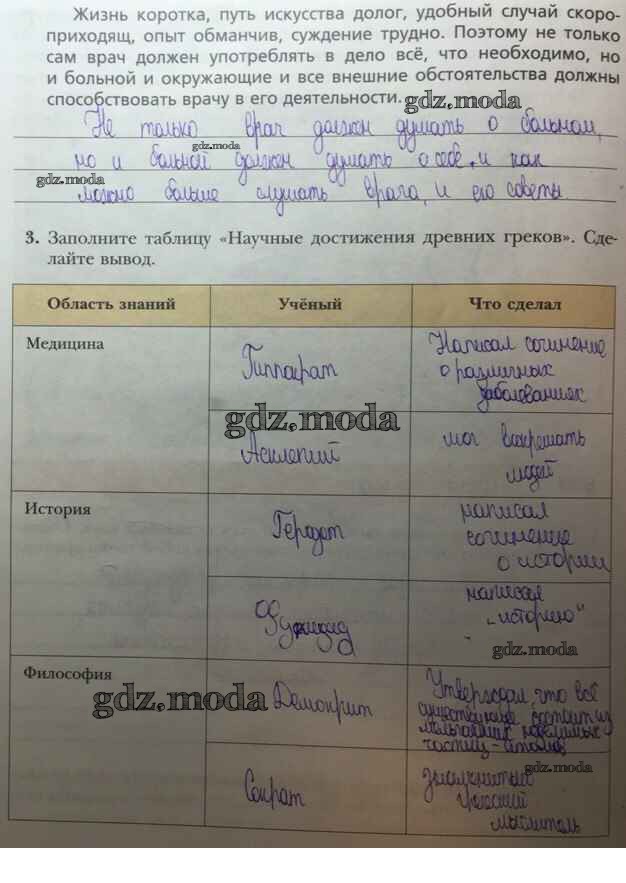 Жизнь коротка, путь искусства долог, удобный случай скоро-
приходящ, опыт обманчив, суждение трудно. Поэтому не только
сам врач должен употреблять в дело всё, что необходимо, но
и больной и окружающие и все внешние обстоятельства должны
способствовать врачу в его деятельности.
gdz.moda
Не только врач должен думать о больном,
gdz.moda
но и больной должен думать о себе, и как
gdz.moda
можно больше слушать врача, и его советы
3. Заполните таблицу «Научные достижения древних греков». Сде-
лайте вывод.
Область знаний Учёный Что сделал
Медицина
Гиппократ
Написал сочинение
о различных
заболеваниях
gdz.moda
Асклепий
мог воскрешать
людей
История
Геродот
написал
сочинение
о истории
Фукидид
написал
„историю"
gdz.moda
Философия
gdz.moda
Демокрит
Утверждал, что всё
существующее состоит из
мельчайших неделимых
частиц - атомов
gdz.moda
Сократ
знаменитый
греческий
мыслитель